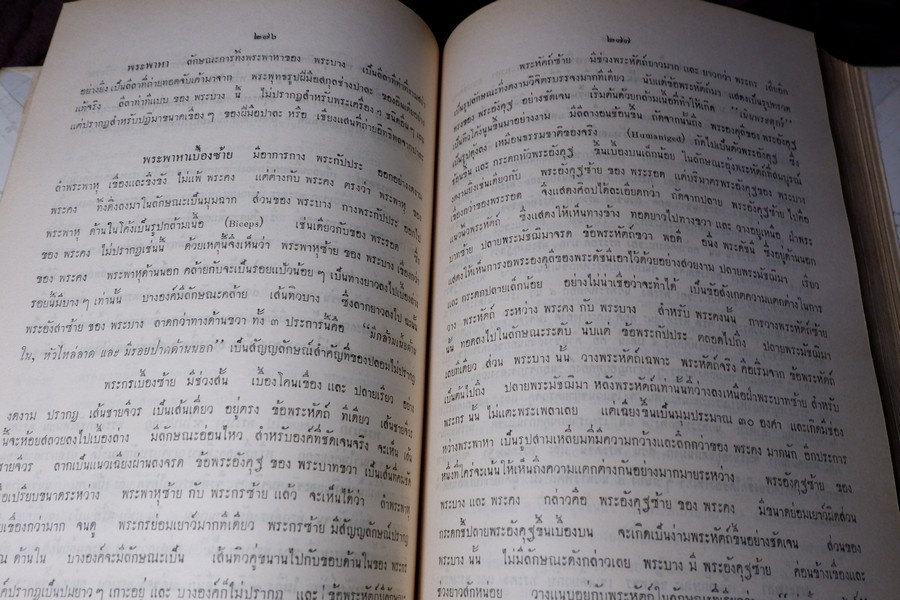 ๒๗๖
พระพาหา ลักษณะการทิ้งพระพาหาของ พระบาง เป็นลีลาที่ทำได้งามสง่า
อย่างยิ่ง เป็นลีลาที่ถ่ายทอดจับเค้ามาจาก พระพุทธรูปฝีมือสกุลช่างปาละ ของอินเดีย
แท้จริง ลีลาท่าที่แบบ ของ พระบาง นี้ ไม่ปรากฏสำหรับพระเครื่อง ๆ ชนิดอื่น ๆ เลย
แต่ปรากฏสำหรับปฏิมาขนาดเขื่อง ๆ ของฝีมือปาละ หรือ เชียงแสนที่ถ่ายอิทธิพลจากปาละ
พระพาหาเบื้องซ้าย มีอาการกาง พระกัปประ ออกอย่างงดงาม
ลำพระพาหุ เขื่องและขึงขัง ไม่แพ้ พระคง แต่ต่างกับ พระคง ตรงว่า พระพาหุ ของ
พระคง ทิ้งดิ่งลงมาในลักษณะเป็นมุมฉาก ส่วนของ พระบาง กางพระกัปประ ออกไป
พระพาหุ ด้านในโค้งเป็นรูปกล้ามเนื้อ (Biceps) เช่นเดียวกับของ พระรอด ซึ่ง
ของ พระคง ไม่ปรากฏเช่นนี้ ด้วยเหตุนี้จึงเห็นว่า พระพาหุซ้าย ของ พระบาง เขื่องกว่า
ของ พระคง พระพาหุด้านนอก คล้ายกับจะเป็นรอยแบ้วน้อย ๆ เป็นทางยาวลงไปเบื้องล่าง
รอยนี้มีบาง ๆ เท่านั้น บางองค์มีลักษณะคล้าย เส้นทิวบาง ซึ่งลากยาวลงไป ฉะนั้น
พระอังสาซ้าย ของ พระบาง ลาดกว่าทางด้านขวา ทั้ง ๓ ประการนี้คือ “มีกล้ามเนื้อด้าน
ใน, หัวไหล่ลาด และ มีรอยปาดด้านนอก” เป็นสัญญลักษณ์สำคัญที่ของปลอมไม่ปรากฏ
พระกรเบื้องซ้าย มีช่วงสั้น เบื้องโคนเขื่อง และ ปลายเรียว อย่าง
งดงาม ปรากฏ เส้นชายจีวร เป็นเส้นเดี่ยว อยู่ตรง ข้อพระหัตถ์ ทีเดียว เส้นชายจีวร
นี้จะห้อยสลวยลงไปเบื้องล่าง มีลักษณะอ่อนไหว สำหรับองค์ที่ชัดเจนจริง จะเห็น เส้น
ชายจีวร ลากเป็นแนวเฉียงผ่านลงจรด ข้อพระอังคุฐ ของ พระบาทขวา เป็นเส้นที่คมชัด
เปรียบขนาดระหว่าง พระพาหุซ้าย กับ พระกรซ้าย แล้ว จะเห็นได้ว่า ลำพระพาหุ
เขื่องกว่ามาก จนดู พระกรยอมเยาว์มากทีเดียว พระกรซ้าย มีสัญญลักษณ์ปรากฏ
ด้านใน บางองค์จะมีลักษณะเป็น เส้นทิวคู่ขนานไปกับขอบด้านในของ พระกร
ปรากฏเป็นปมยาว ๆ เกาะอยู่ และ บางองค์ก็ไม่ปรากฏ และ ข้อพระหัตถ์ด้านใน
๒๗๗
พระหัตถ์ซ้าย มีช่วงพระหัตถ์ยาวมาก และ ยาวกว่า พระกร เสียอีก
เป็นรูปลักษณะที่งดงามวิจิตรบรรจงมากทีเดียว นับแต่ข้อพระหัตถ์มา แสดงเป็นรูปทรวด
ทรงของ พระอังคุฐ อย่างชัดเจน เริ่มต้นด้วยกล้ามเนื้อที่ทำให้เกิด “เนินพระศุกร์”
เป็นคิ้งโค้งนูนขึ้นมาอย่างงาม มีสถานะอ่อนช้อน ถัดจากนั้นถึง พระองคุลีของ พระอังคุฐ
เป็นรูปคู้งอลง เหมือนธรรมชาติของจริง (Humanized) ถัดไปเป็นตัวพระอังคุฐ ซึ่ง
ช้อนขึ้น และ กระดกหัวพระอังคุฐ ขึ้นเบื้องบนเล็กน้อย ในลักษณะอุ้งพระหัตถ์สมบูรณ์
งดงามยิ่งเช่นเดียวกับ พระอังคุฐซ้าย ของ พระรอด แต่บริมาตรพระอังคุฐของ พระบาง
เขื่องกว่าของพระรอด จึงแสดงศิลปได้ละเอียดกว่า ถัดจากปลาย พระอังคุฐซ้าย ไปคือ
แนวนิ้วพระหัตถ์ ซึ่งแสดงให้เห็นทางข้าง ทอดยาวไปทางขวา และ วางอยู่เหนือ ฝ่าพระ
บาทซ้าย ปลายพระมัชฌิมาจรด ข้อพระหัตถ์ขวา พอดี อนึ่ง พระดัชนี ซึ่งอยู่ด้านนอก
แสดงให้เห็นการงอพระองคุลีของพระดัชนีเอาไว้ด้วยอย่างสวยงาม ปลายพระมัชฌิมา เรียว
และ กระดกปลายเล็กน้อย อย่างไม่น่าเชื่อว่าจะทำได้ เป็นข้อสังเกตความแตกต่างในการ
วาง พระหัตถ์ ระหว่าง พระคง กับ พระบาง สำหรับ พระคงนั้น การวางพระหัตถ์ซ้าย
นั้น ทอดลงไปในลักษณะระดับ นับแต่ ข้อพระกัปประ ตลอดไปถึง ปลายพระมัชฌิมา
เลยทีเดียว ส่วน พระบาง นั้น วางพระหัตถ์เฉพาะ พระหัตถ์จริง คือเริ่มจาก ข้อพระหัตถ์
เป็นต้นไปถึง ปลายพระมัชฌิมา หลังพระหัตถ์เท่านั้นที่ว่างลงเหนือฝ่าพระบาทซ้าย สำหรับ
พระกร นั้น ไม่แตะพระเพลาเลย แต่เฉียงขึ้นเป็นมุมประมาณ ๓๐ องศา และเกิดมีช่อง
หว่างพระพาหา เป็นรูปสามเหลี่ยมที่มีความกว้างและลึกกว่าของ พระคง มากนัก อีกประการ
หนึ่งที่ใคร่จะเน้นให้เห็นถึงความแตกต่างกันอย่างมากมายระหว่าง พระอังคุฐซ้าย ของ
พระบาง และ พระคง กล่าวคือ พระอังคุฐซ้าย ของ พระคง มีขนาดยอมเยาว์ผิดส่วน
กระดกขี้ปลายพระอังคุฐขึ้นเบื้องบน จะเกิดเป็นง่ามพระหัตถ์ขึ้นอย่างชัดเจน ส่วนของ
พระบาง นั้น ไม่มีลักษณะดังกล่าวเลย พระบาง มี พระอังคุฐซ้าย ค่อนข้างเขื่องและ
ช่วงยาวสักหน่อย วางแนบอยู่กับพระหัตถ์ในลักษณะที่เกือบ